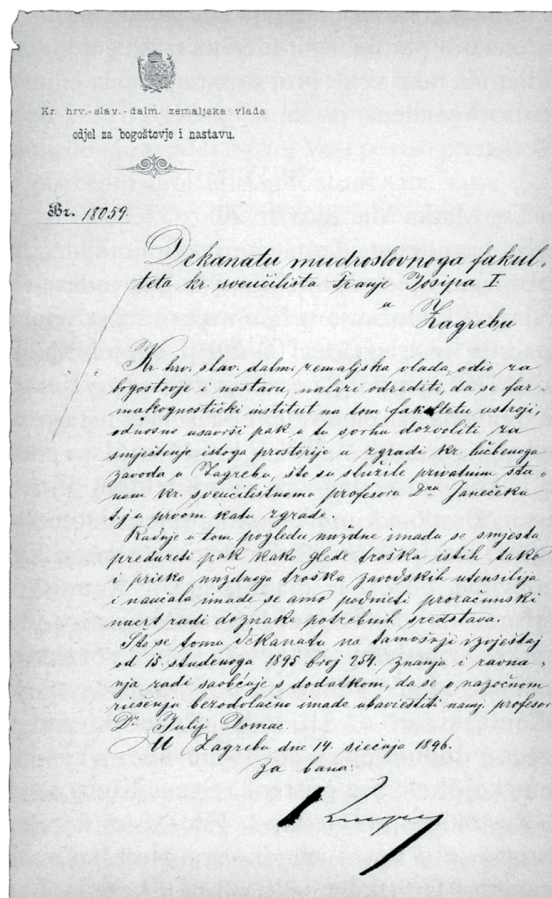 Kr. hrv.-slav.-dalm. zemaljska vlada
odjel za bogoštovje i nastavu.
Br. 18059.
Dekanatu mudroslovnoga fakul-
teta kr. sveučilišta Franje Josipa I
u
Zagrebu
Kr. hrv. slav. dalm. zemaljska vlada, odio za
bogoštovje i nastavu, nalazi odrediti, da se far-
makognostički institut na tom fakultetu ustroji,
odnosno usavrši pak u tu svrhu dozvoliti za
smještenje istoga prostorije u zgradi kr. lučbenoga
zavoda u Zagrebu, što su služile privatnim sta-
nom kr. sveučilištnomu profesoru Dra Janečeku
tj u prvom katu zgrade.
Radnje u tom pogledu nuždne imadu se smjesta
preduzeti pak kako glede troška istih tako
i prieko nuždnoga troška zavodskih utensilija
i naučala imade se amo podnieti proračunski
nacrt radi doznake potrebnih sredstava.
Što se tomu dekanatu na tamošnji izvještaj
od 15. studenoga 1895 broj 254. znanja i ravna-
nja radi saobćuje s dodatkom, da se o nazočnom
riešenju bezodvlačno imade obaviestiti namj. profesor
Dr. Julij Domac.
U Zagrebu dne 14. siečnja 1896.
Za bana: